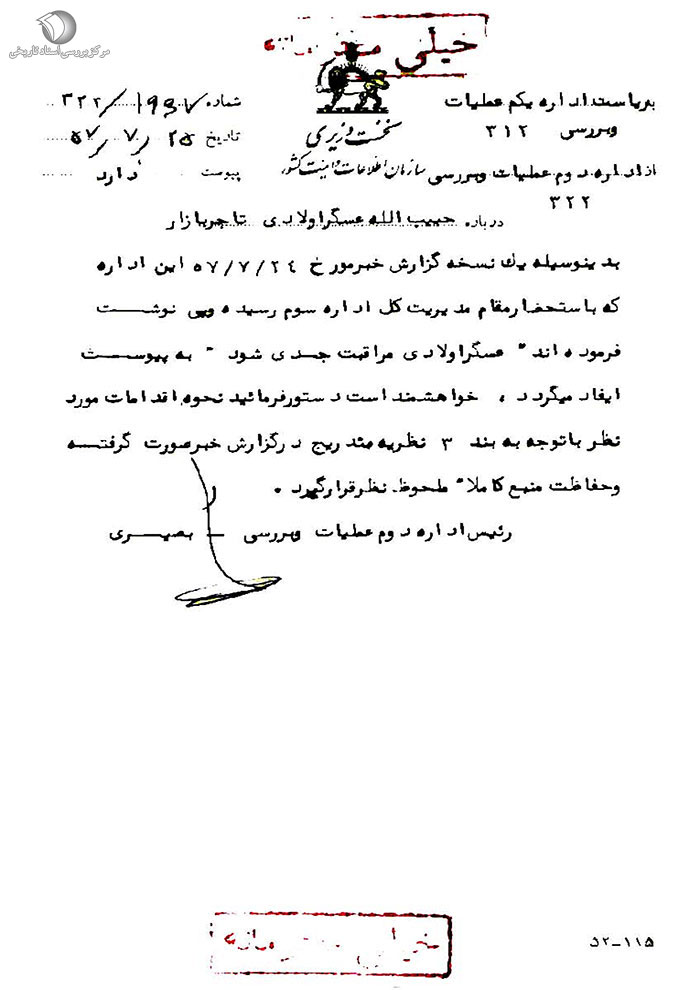 مرکز بررسی اسناد تاریخی
خیلی محرمانه
به ریاست اداره یکم عملیات
وبررسی ۳۱۲
از اداره دوم عملیات وبررسی
۳۲۲
نخست وزیری
سازمان اطلاعات و امنیت کشور
شماره ۳۲۲/
تاریخ ۲۵/۷/۵۷
پیوست دارد
درباره حبیب الله عسگراولادی تاجربازار
بدینوسیله یك نسخه گزارش خبرمورخ ۵۷/۷/۲۴ این اداره
که باستحضارمقام مدیریت کل اداره سوم رسیده وپی نوشت
فرموده اند " عسگراولادی مراقبت جدی شود " به پیوست
ایفاد میگردد ، خواهشمند است دستورفرمائید نحوه اقدامات مورد
نظر باتوجه به بند ۳ نظریه مندرج درگزارش خبرصورت گرفته
وحفاظت منبع کاملا" ملحوظ نظرقرارگیرد .
رئیس اداره دوم عملیات وبررسی – بصیری
خیلی محرمانه
۵۲-۱۱۵